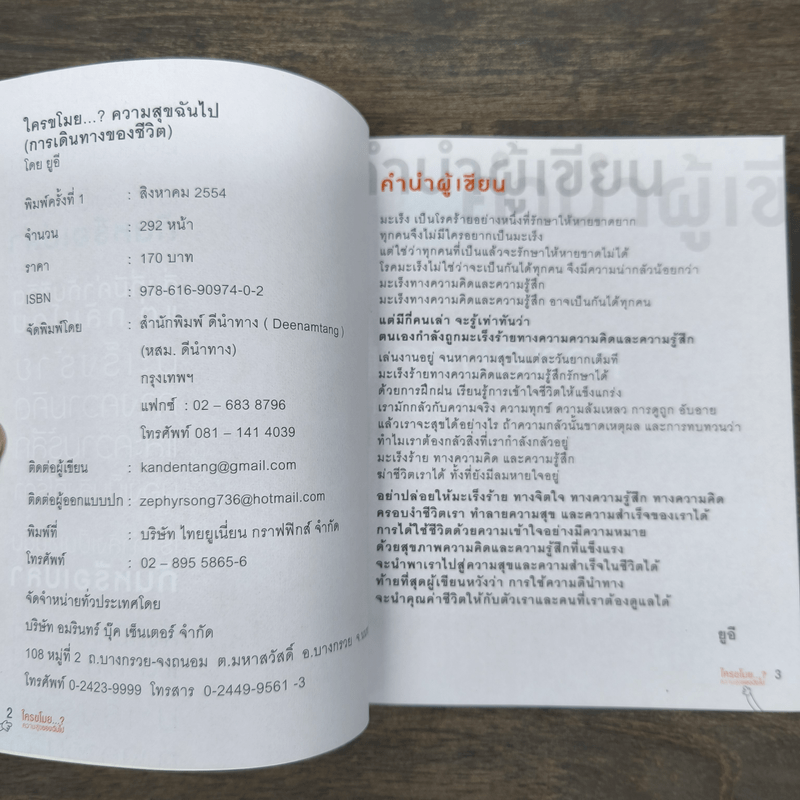 ใครขโมย...? ความสุขฉันไป
(การเดินทางของชีวิต)
โดย ยูอี
พิมพ์ครั้งที่ 1 : สิงหาคม 2554
จำนวน : 292 หน้า
ราคา : 170 บาท
ISBN : 978-616-90974-0-2
จัดพิมพ์โดย : สำนักพิมพ์ ดีนำทาง ( Deenamtang )
(หสม. ดีนำทาง)
กรุงเทพฯ
แฟกซ์ : 02 – 683 8796
โทรศัพท์ 081 – 141 4039
ติดต่อผู้เขียน : kandentang@gmail.com
ติดต่อผู้ออกแบบปก : zephyrsong736@hotmail.com
พิมพ์ที่ : บริษัท ไทยยูเนี่ยน กราฟฟิกส์ จำกัด
โทรศัพท์ : 02 – 895 5865-6
จัดจำหน่ายทั่วประเทศโดย
บริษัท อมรินทร์ บุ๊ค เซ็นเตอร์ จำกัด
108 หมู่ที่ 2 ถ.บางกรวย-จงถนอม ต.มหาสวัสดิ์ อ.บางกรวย
โทรศัพท์ 0-2423-9999 โทรสาร 0-2449-9561 -3
2 ใครขโมย...?
ความสุขของฉันไป
คำนำผู้เขียน
คำนำผู้เขียน
มะเร็ง เป็นโรคร้ายอย่างหนึ่งที่รักษาให้หายขาดยาก
ทุกคนจึงไม่มีใครอยากเป็นมะเร็ง
แต่ใช่ว่าทุกคนที่เป็นแล้วจะรักษาให้หายขาดไม่ได้
โรคมะเร็งไม่ใช่ว่าจะเป็นกันได้ทุกคน จึงมีความน่ากลัวน้อยกว่า
มะเร็งทางความคิดและความรู้สึก
มะเร็งทางความคิดและความรู้สึก อาจเป็นกันได้ทุกคน
แต่มีกี่คนเล่า จะรู้เท่าทันว่า
ตนเองกำลังถูกมะเร็งร้ายทางความความคิดและความรู้สึก
เล่นงานอยู่ จนหาความสุขในแต่ละวันยากเต็มที
มะเร็งร้ายทางความคิดและความรู้สึกรักษาได้
ด้วยการฝึกฝน เรียนรู้การเข้าใจชีวิตให้แข็งแกร่ง
เรามักกลัวกับความจริง ความทุกข์ ความล้มเหลว การดูถูก อับอาย
แล้วเราจะสุขได้อย่างไร ถ้าความกลัวนั้นขาดเหตุผล และการทบทวนว่า
ทำไมเราต้องกลัวสิ่งที่เรากำลังกลัวอยู่
มะเร็งร้าย ทางความคิด และความรู้สึก
ฆ่าชีวิตเราได้ ทั้งที่ยังมีลมหายใจอยู่
อย่าปล่อยให้มะเร็งร้าย ทางจิตใจ ทางความรู้สึก ทางความคิด
ครอบงำชีวิตเรา ทำลายความสุข และความสำเร็จของเราได้
การได้ใช้ชีวิตด้วยความเข้าใจอย่างมีความหมาย
ด้วยสุขภาพความคิดและความรู้สึกที่แข็งแรง
จะนำพาเราไปสู่ความสุขและความสำเร็จในชีวิตได้
ท้ายที่สุดผู้เขียนหวังว่า การใช้ความดีนำทาง
จะนำคุณค่าชีวิตให้กับตัวเราและคนที่เราต้องดูแลได้
ยูอี
ใครขโมย...? 3
ความสุขของฉันไป